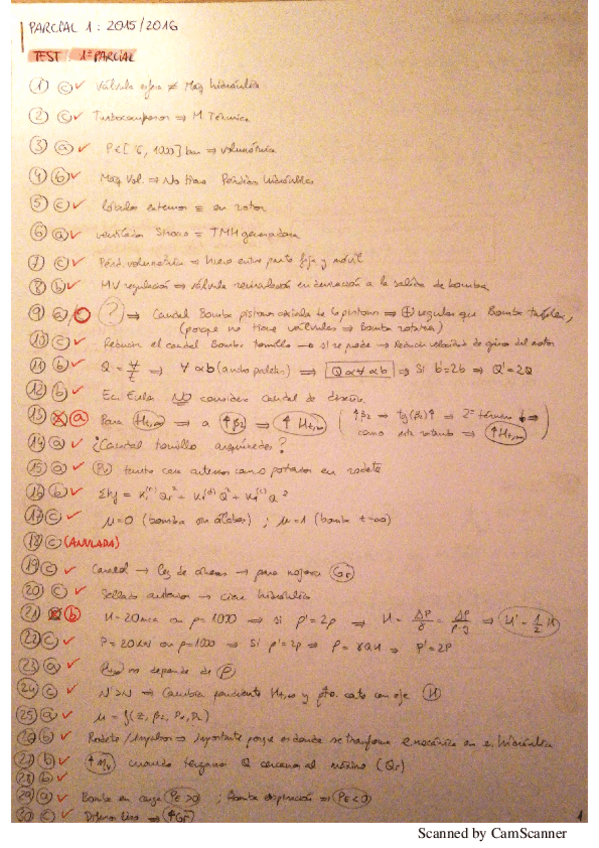 PARCIAL 1: 2015/2016
TEST 1ª PARCIAL
1) c ✓ Válvula esfera ≠ Maq hidráulica
2) c ✓ Turbocompresor ⇒ M. Térmica
3) a ✓ P<[6, 1000] bar ⇒ volumétrica
4) b ✓ Maq Vol. ⇒ No tiene Pérdidas Hidráulicas
5) c ✓ lóbulos externos = en rotor
6) a ✓ ventilador = TMH generadora
7) c ✓ Pérd. volumétrica = hueco entre parte fija y móvil
8) b ✓ MV regulación ⇒ válvula en derivación a la salida de bomba
9) a/c ? ⇒ Caudal Bomba pistones de 6 pistones ⇒ ⊕ regular que Bomba
(porque no tiene válvulas ⇒ Bomba rotativa)
10) c ✓ Reducir el caudal Bomba tornillo → si se puede → Reducir velocidad de giro del motor
11) b ✓ Q = ⇒ ∀ α b (ancho paletas) ⇒ Q α ∀ α b ⇒ Si b'=2b ⇒ Q'=2Q
12) b ✓ Ec. Euler NO considera caudal de diseño
13) a Para Ht,∞ ⇒ a ↑β2 ⇒ ↑Ht,∞ (↑β2 → tg(β2)↑ ⇒ 2º término ↓ ⇒
como está restando ⇒ ↑Ht,∞)
14) a ✓ ¿Caudal tornillo arquímedes?
15) a ✓ tanto cara anterior como posterior en rodete
16) b ✓
17) c ✓ μ=0 (bomba sin álabes) ; μ=1 (bomba z=∞)
18) c (ANULADA)
19) c ✓ Caudal → ley de → para mejorar
20) c ✓ Sellado anterior → cierre hidráulico
21) b H=20mca con ρ=1000 ⇒ si ρ'=2ρ ⇒ H = ΔP/γ = ΔP/ρ·g ⇒ H' = 1/2 H
22) c ✓ P=20kW con ρ=1000 ⇒ Si ρ'=2ρ ⇒ P=γQH ⇒ P'=2P
23) a ✓ no depende de ρ
24) c ✓ N'>N ⇒ Cambia pendiente Ht,∞ y pto. corte con eje H
25) a ✓ μ = f(z, β2, R1, R2)
26) b ✓ Rodete/Impulsor ⇒ importante porque es donde se transforma E mecánica en E. Hidráulica
27) b ✓ ↑ηv cuando tengamos Q cercano al máximo
28) b ✓
29) a ✓ Bomba en carga PE>0 ; Bomba aspiración ⇒ PE<0
30) c ✓
1
Scanned by CamScanner